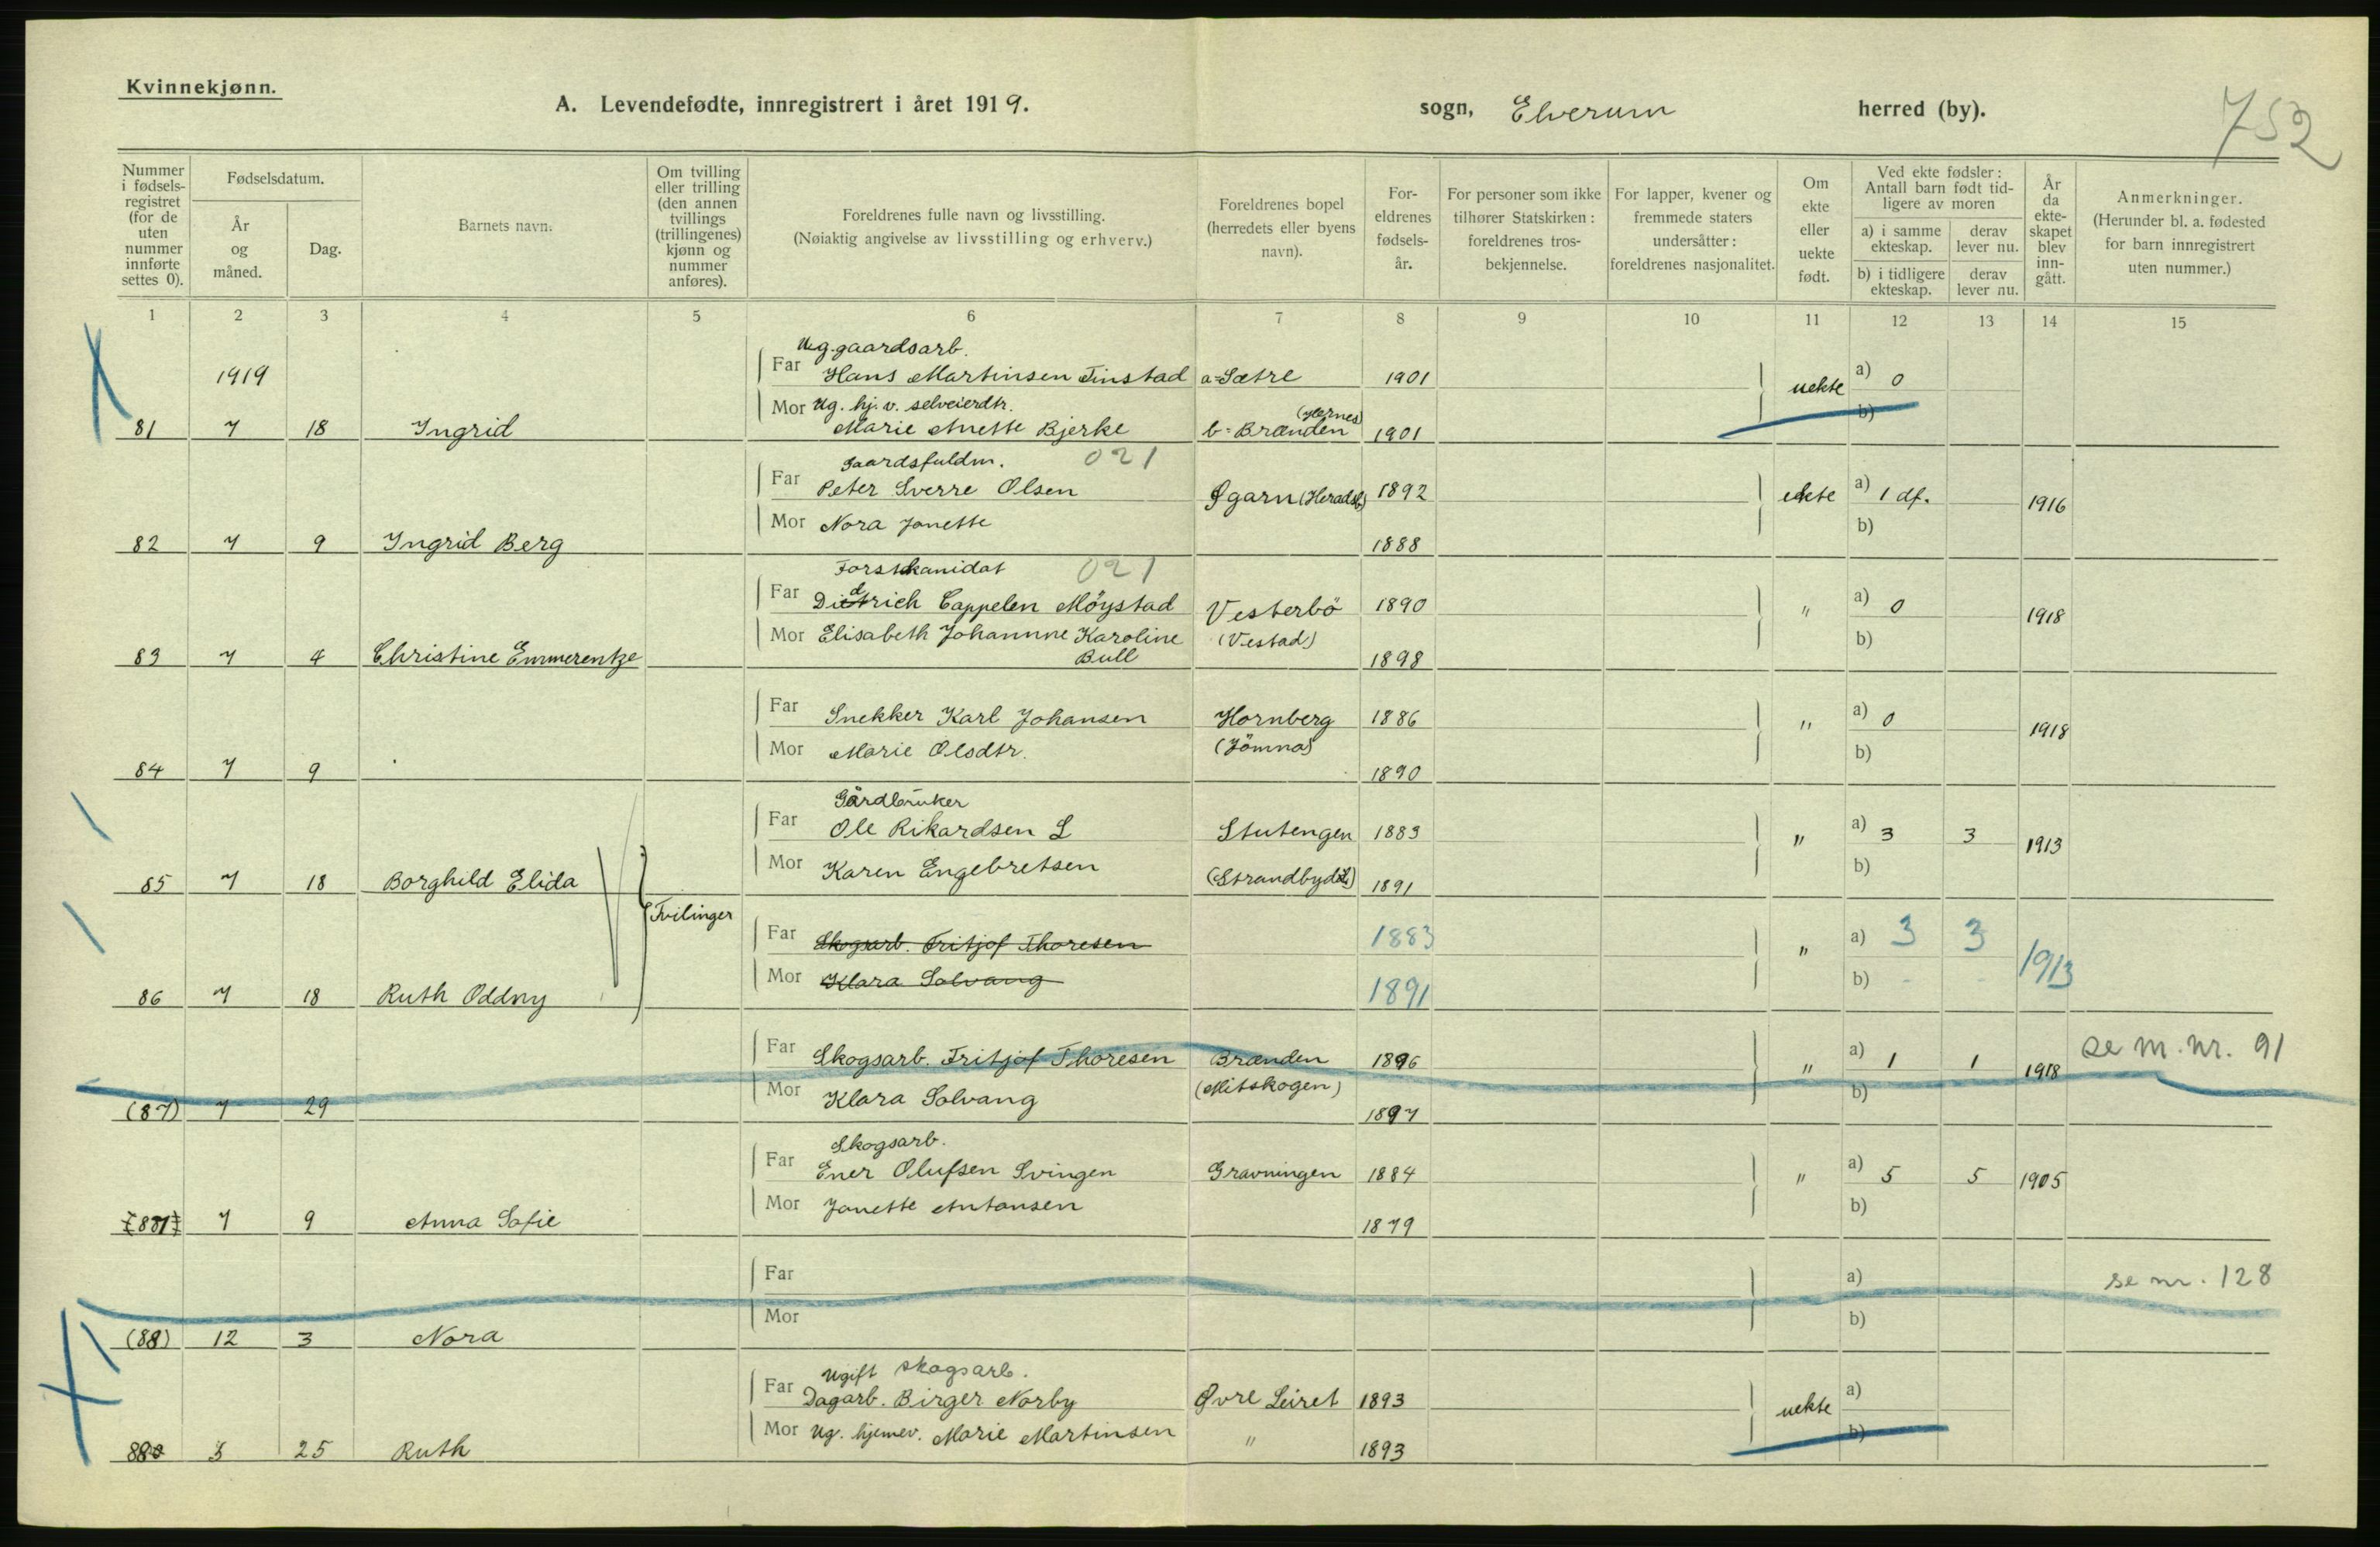 Kvinnekjønn.
A. Levendefødte, innregistrert i året 1919.
sogn, Elverum herred (by).
752
Nummer i fødsels-registret (for de uten nummer innførte settes 0).
Fødselsdatum.
År og måned.
Dag.
Barnets navn.
Om tvilling eller trilling (den annen tvillings (trillingenes) kjønn og nummer anføres).
Foreldrenes fulle navn og livsstilling.
(Nøiaktig angivelse av livsstilling og erhverv.)
Foreldrenes bopel (herredets eller byens navn).
For-eldrenes fødsels-år.
For personer som ikke tilhører Statskirken: foreldrenes tros-bekjennelse.
For lapper, kvener og fremmede staters undersåtter: foreldrenes nasjonalitet.
Om ekte eller uekte født.
Ved ekte fødsler: Antall barn født tid-ligere av moren
a) i samme ekteskap.
derav lever nu.
b) i tidligere ekteskap.
derav lever nu.
År da ekte-skapet blev inn-gått.
Anmerkninger.
(Herunder bl. a. fødested for barn innregistrert uten nummer.)
1 2 3 4 5 6 7 8 9 10 11 12 13 14 15
Ug. gaardsarb.
1919 Far Hans Martinsen Finstad a=Sætre 1901 uekte a) 0
Mor Ug. hj. v. selveierdtr. (Hernes) b)
81 7 18 Ingrid Marie Anette Bjerke b=Brænden 1901
Gaardsfuldm. 021
Far Peter Sverre Olsen Øgarn (Heradsb) 1892 ekte a) 1 df. 1916
Mor Nora Janette b)
82 7 9 Ingrid Berg 1888
Forstkanidat 021
Far Didrich Cappelen Möystad Vesterbö 1890 " a) 0 1918
Mor Elisabeth Johannne Karoline (Vestad) b)
83 7 4 Christine Emmerentze Bull 1898
Far Snekker Karl Johansen Hornberg 1886 " a) 0 1918
Mor Marie Olsdtr. (Jömna) b)
84 7 9 1890
Gårdbruker
Far Ole Rikardsen L Stutengen 1883 " a) 3 3 1913
Mor Karen Engebretsen b)
85 7 18 Borghild Elida (Strandbyd) 1891
Tvilinger
Far Skogsarb. Fritjof Thoresen 1883 " a) 3 3 1913
Mor Klara Solvang b) - -
86 7 18 Ruth Oddny 1891
Far Skogsarb. Fritjof Thoresen Brænden 1896 " a) 1 1 1918 se m. nr. 91
Mor Klara Solvang (Mitskogen) b)
(87) 7 29 1897
Skogsarb.
Far Ener Olufsen Svingen Gravningen 1884 " a) 5 5 1905
Mor Janette Antonsen b)
7 9 Anna Sofie 1879
Far a) se nr. 128
Mor b)
(88) 12 3 Nora
Ugift skogsarb.
Far Dagarb. Birger Norby Øvre Leiret 1893 uekte a)
Mor Ug. hjemev. Marie Martinsen " b)
3 25 Ruth 1893